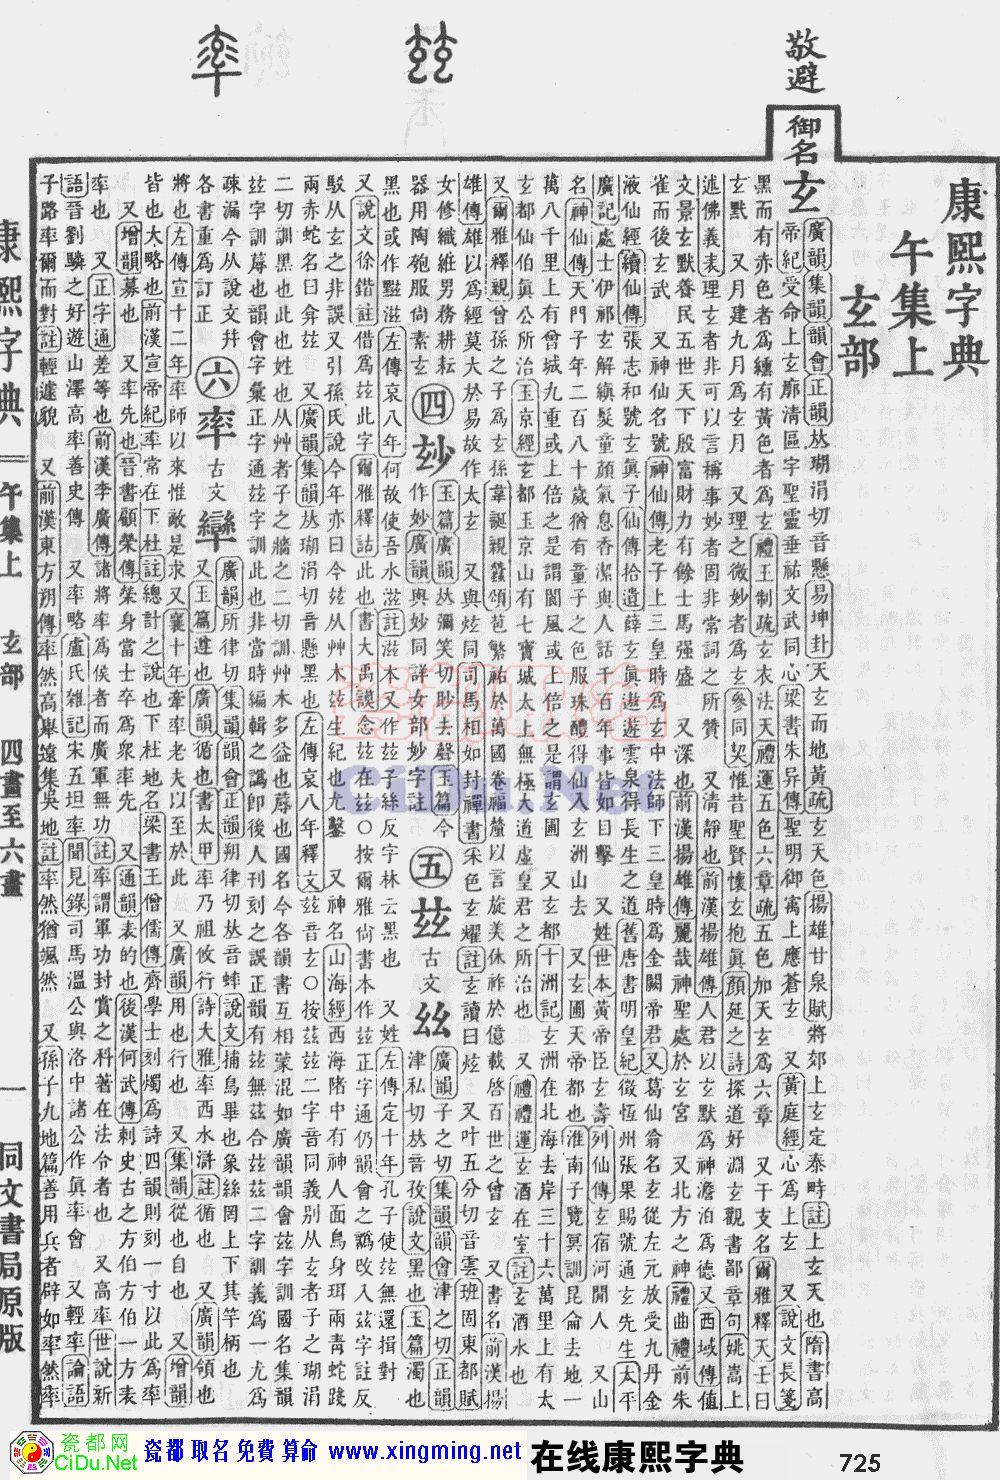 率
兹
敬避
御名
康熙字典
午集上
玄部
玄廣韻集韻韻會正韻𠀤瑚涓切音懸易坤卦天玄而地黃疏玄天色揚雄甘泉賦將郊上玄定泰畤註上玄天也隋書高
帝紀受命上玄廓清區宇聖靈垂祐文武同心梁書朱异傳聖明御寓上應蒼玄 又黃庭經心爲上玄 又說文長箋
黑而有赤色者爲纁有黃色者爲玄禮王制疏玄衣法天禮運五色六章疏五色加天玄爲六章 又干支名爾雅釋天壬曰
玄默 又月建九月爲玄月 又理之微妙者爲玄參同契惟昔聖賢懷玄抱眞顏延之詩探道好淵玄觀書鄙章句姚嵩上
述佛義表理玄者非可以言稱事妙者固非常詞之所贊 又清靜也前漢揚雄傳人君以玄默爲神澹泊爲德又西域傳值
文景玄默養民五世天下殷富財力有餘士馬强盛 又深也前漢揚雄傳麗哉神聖處於玄宮 又北方之神禮曲禮前朱
雀而後玄武 又神仙名號神仙傳老子上三皇時爲玄中法師下三皇時爲金闕帝君又葛仙翁名玄從左元放受九丹金
液仙經續仙傳張志和號玄眞子仙傳拾遺薛玄眞遨遊雲泉得長生之道舊唐書明皇紀徵恆州張果賜號通玄先生太平
廣記處士伊祁玄解縝髮童顏氣息香潔與人話千百年事皆如目擊 又姓世本黃帝臣玄壽列仙傳玄宿河閒人 又山
名神仙傳天門子年二百八十歲猶有童子之色服珠醴得仙入玄洲山去 又玄圃天帝都也淮南子覽冥訓昆侖去地一
萬八千里上有曾城九重或上倍之是謂閬風或上倍之是謂玄圃 又玄都十洲記玄洲在北海去岸三十六萬里上有太
玄都仙伯眞公所治玉京經玄都玉京山有七寶城太上無極大道虛皇君之所治也 又禮禮運玄酒在室註玄酒水也
又爾雅釋親曾孫之子爲玄孫韋誕親蠶頌苞繁祐於萬國卷福釐以言旋美休祚於億載啓百世之曾玄 又書名前漢揚
雄傳雄以爲經莫大於易故作太玄 又與炫同司馬相如封禪書采色玄耀註玄讀曰炫 又叶五分切音雲班固東都賦
女修織紝男務耕耘
器用陶匏服尚素玄
四玅玉篇廣韻𠀤彌笑切眇去聲玉篇今
作妙廣韻與妙同詳女部妙字註
五兹古文𢆶廣韻子之切集韻韻會津之切正韻
津私切𠀤音孜說文黑也玉篇濁也
黑也或作黰滋左傳哀八年何故使吾水滋註滋本又作兹子絲反字林云黑也 又姓左傳定十年孔子使兹無還揖對
又說文徐鍇註借爲兹此字爾雅釋詁此也書大禹謨念兹在兹○按爾雅尙書本作兹正字通仍韻會之譌改入兹字註反
駁从玄之非誤又引孫氏說今年亦曰今兹从艸木兹生紀也尤鑿 又神名山海經西海陼中有神人面鳥身珥兩靑蛇踐
兩赤蛇名曰弇兹 又廣韻集韻𠀤瑚涓切音懸黑也左傳哀八年釋文兹音玄○按茲兹二字音同義别从玄者子之瑚涓
二切訓黑也此也姓也从艸者子之牆之二切訓艸木多益也蓐也國名今各韻書互相蒙混如廣韻韻會兹字訓國名集韻
兹字訓蓐也韻會字彙正字通兹字訓此也非當時編輯之譌卽後人刊刻之誤正韻有兹無茲合兹茲二字訓義爲一尤爲
疎漏今从說文幷
各書重爲訂正
六率古文𤔳廣韻所律切集韻韻會正韻朔律切𠀤音蟀說文捕鳥畢也象絲罔上下其竿柄也
又玉篇遵也廣韻循也書太甲率乃祖攸行詩大雅率西水滸註循也 又廣韻領也
將也左傳宣十二年率師以來惟敵是求又襄十年牽率老夫以至於此 又廣韻用也行也 又集韻從也自也 又增韻
皆也大略也前漢宣帝紀率常在下杜註總計之說也下杜地名梁書王僧儒傳齊學士刻燭爲詩四韻則刻一寸以此爲率
又增韻募也 又率先也晉書顧榮傳榮身當士卒爲衆率先 又通韻表的也後漢何武傳刺史古之方伯方伯一方表
率也 又正字通差等也前漢李廣傳諸將率爲侯者而廣軍無功註率謂軍功封賞之科著在法令者也 又高率世說新
語晉劉驎之好遊山澤高率善史傳 又率略盧氏雜記宋五坦率聞見錄司馬溫公與洛中諸公作眞率會 又輕率論語
子路率爾而對註輕遽貌 又前漢東方朔傳率然高舉遠集吳地註率然猶颯然 又孫子九地篇善用兵者辟如率然率
康熙字典
午集上
玄部
四畫至六畫
一
同文書局原版
CiDu.Net
瓷都网
CiDu.Net
瓷都 取名 免費 算命 www.xingming.net
在线康熙字典
725